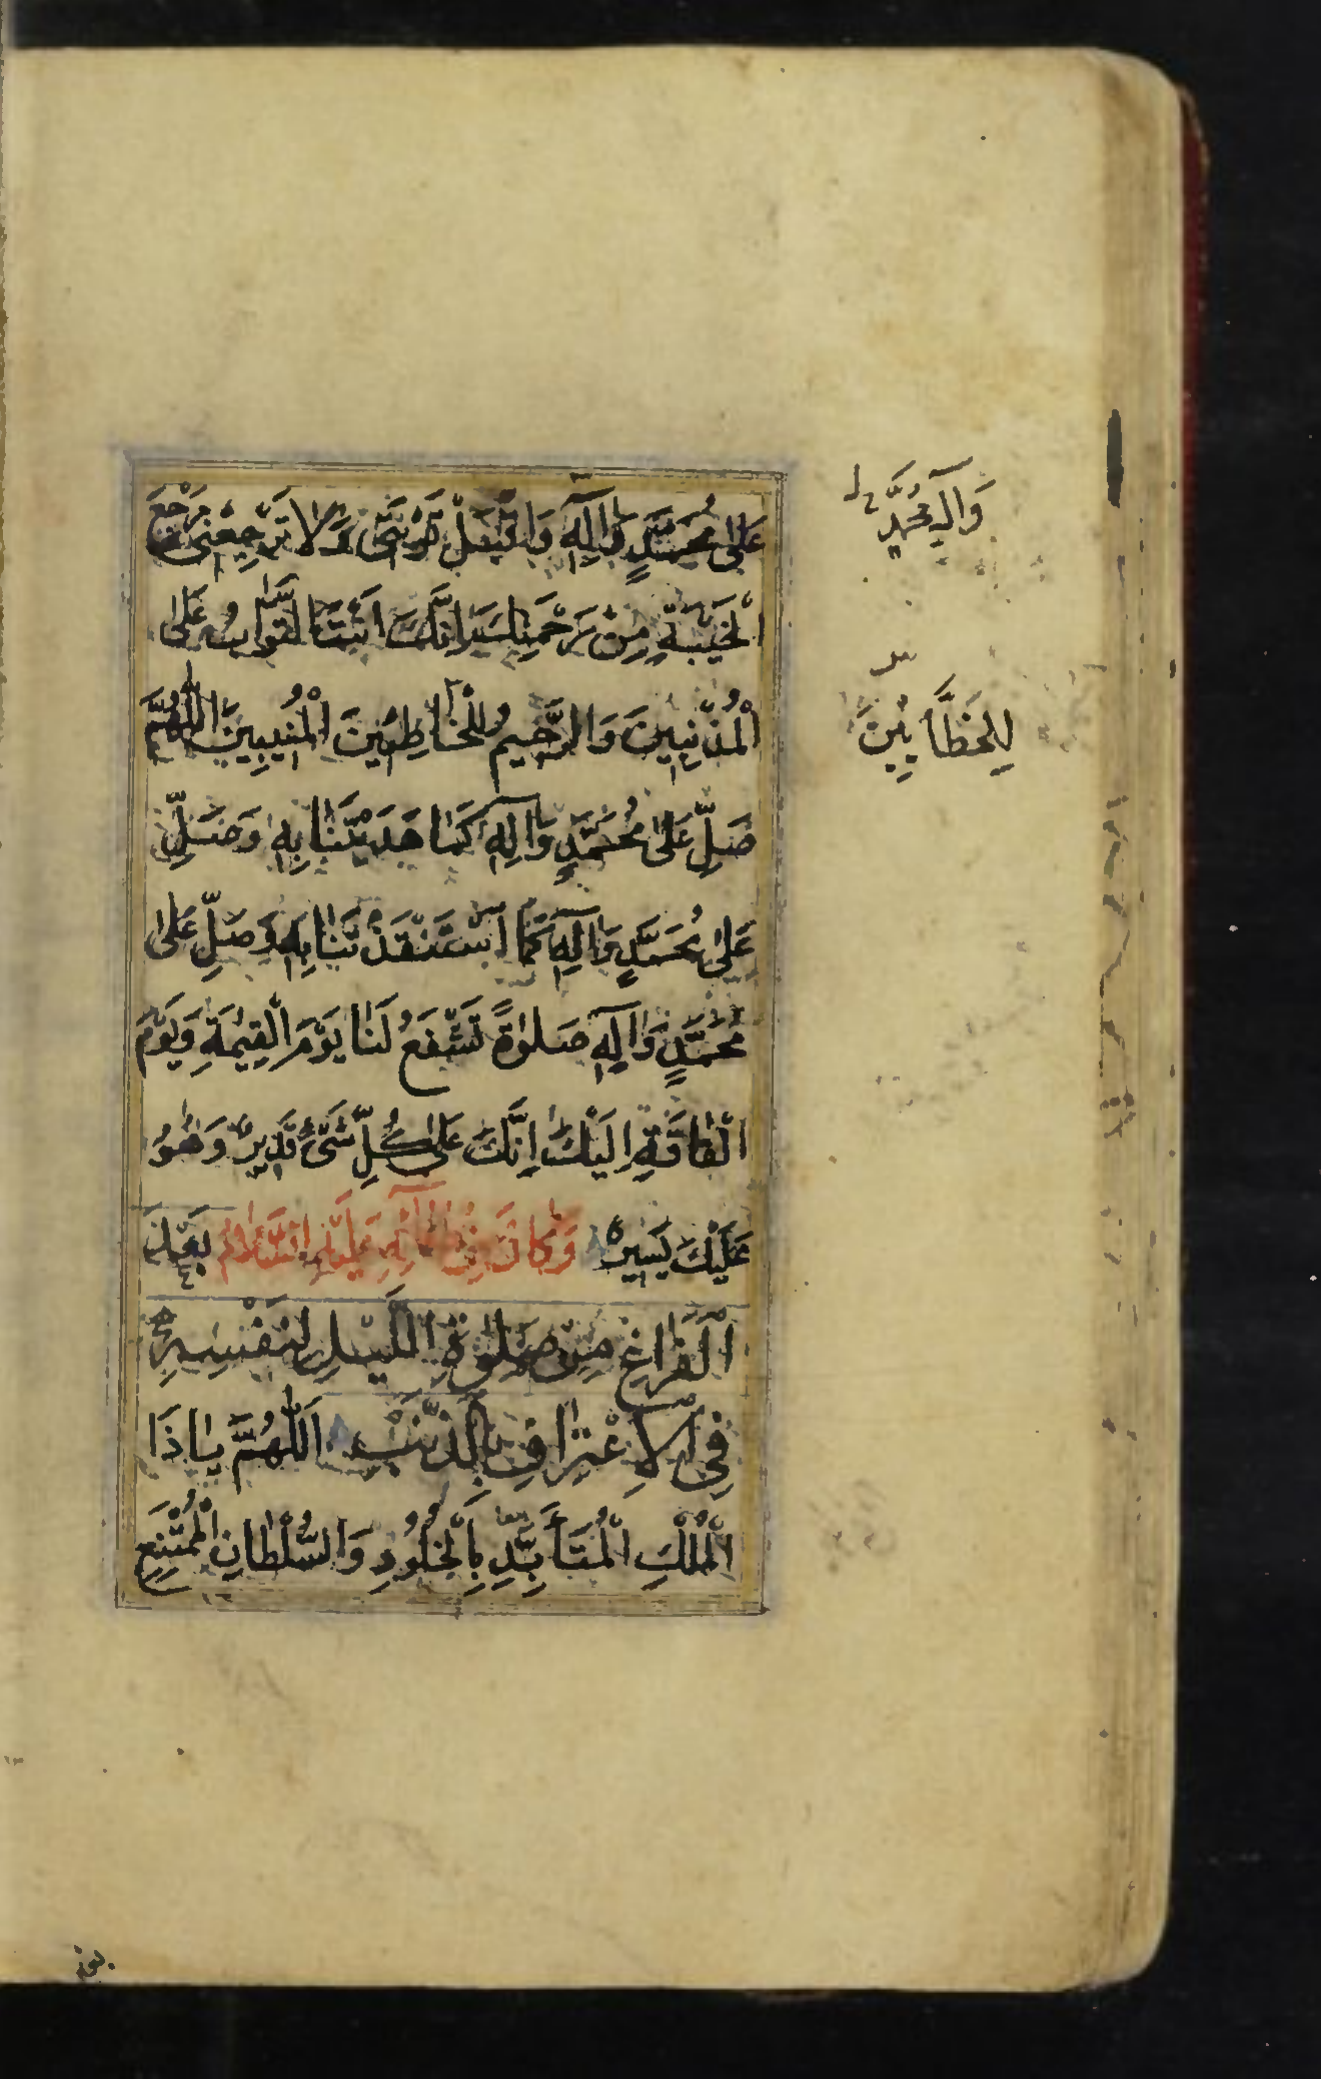 عَلىٰ مُحَمَّدٍ وَاٰلِهٖ وَاقْبَلْ تَوْبَتى وَلا تَرْجِعْنى مَرْجَعَ
الْخَيْبَةِ مِنْ رَحْمَتِكَ اِنَّكَ اَنْتَ التَّوّابُ عَلَى
الْمُذْنِبينَ وَالرَّحيمُ لِلْخاطِئينَ الْمُنيبينَ اَللّٰهُمَّ
صَلِّ عَلىٰ مُحَمَّدٍ وَاٰلِهٖ كَما هَدَيْتَنا بِهٖ وَصَلِّ
عَلىٰ مُحَمَّدٍ وَاٰلِهٖ كَمَا اسْتَنْقَذْتَنا بِهٖ وَصَلِّ عَلىٰ
مُحَمَّدٍ وَاٰلِهٖ صَلوٰةً تَشْفَعُ لَنا يَوْمَ الْقِيٰمَةِ وَيَوْمَ
الْفاقَةِ اِلَيْكَ اِنَّكَ عَلىٰ كُلِّ شَىْءٍ قَديرٌ وَهُوَ
عَلَيْكَ يَسيرٌ وَكانَ مِنْ دُعائِهٖ عَلَيْهِ السَّلامُ بَعْدَ
الْفَراغِ مِنْ صَلوٰةِ اللَّيْلِ لِنَفْسِهٖ
فِى الْاِعْتِرافِ بِالذَّنْبِ اَللّٰهُمَّ يا ذَا
الْمُلْكِ الْمُتَأَبِّدِ بِالْخُلُودِ وَالسُّلْطانِ الْمُمْتَنِعِ
وَاٰلِ مُحَمَّدٍ
لِلْخَطّائينَ